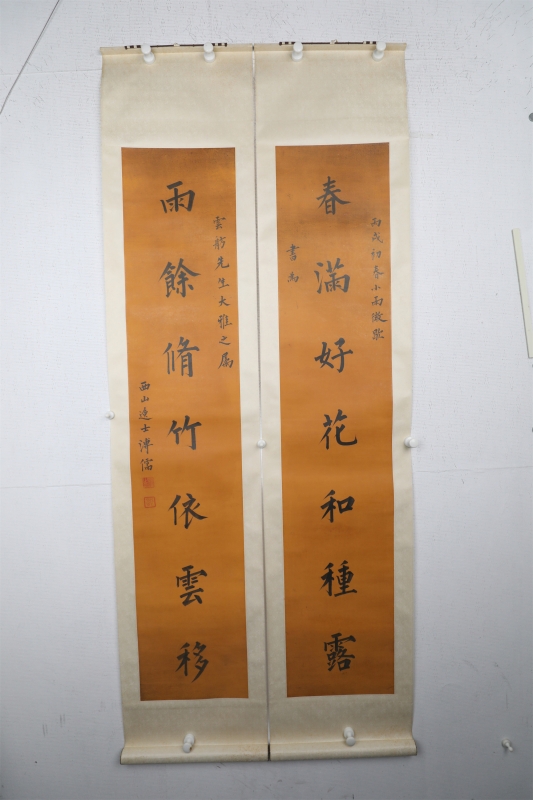 丙戌初春小雨微歇
書為
春滿好花和種露
雲舫先生大雅之屬
雨餘脩竹依雲移
西山逸士溥儒